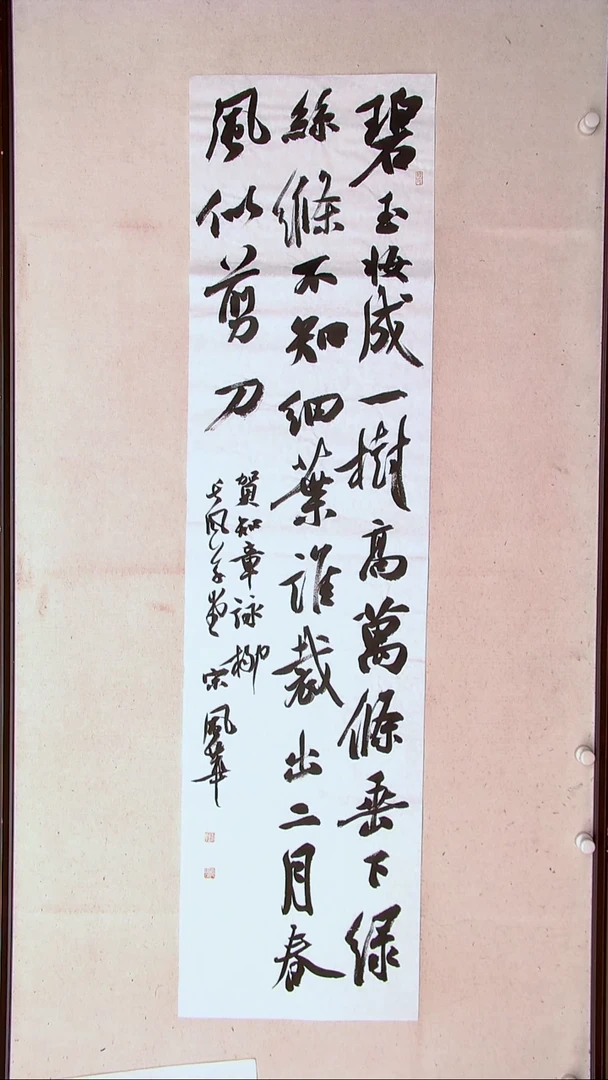 碧玉妝成一樹高萬條垂下緑
絲絛不知細葉誰裁出二月春
風似剪刀
賀知章詠柳
長風草堂 宋風華